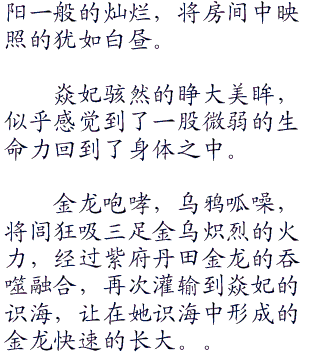 阳一般的灿烂，将房间中映
照的犹如白昼。
焱妃骇然的睁大美眸，
似乎感觉到了一股微弱的生
命力回到了身体之中。
金龙咆哮，乌鸦呱噪，
将闾狂吸三足金乌炽烈的火
力，经过紫府丹田金龙的吞
噬融合，再次灌输到焱妃的
识海，让在她识海中形成的
金龙快速的长大。。